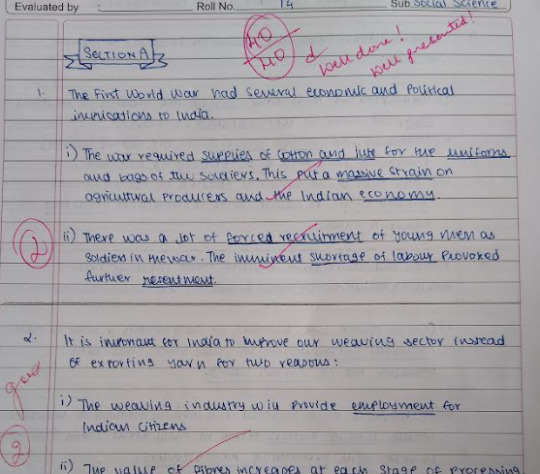 Evaluated by : Roll No. 14 Sub Social Science
SECTION A
40
40
Well done!
Well presented!
1. The First World War had several economic and political
implications to India.
i) The war required supplies of cotton and jute for the uniforms
and bags of the soldiers. This put a massive strain on
agricultural producers and the Indian economy.
2
ii) There was a lot of forced recruitment of young men as
soldiers in the war. The imminent shortage of labour provoked
further resentment.
2. It is important for India to improve our weaving sector instead
of exporting yarn for two reasons:
good
i) The weaving industry will provide employment for
Indian citizens
2
ii) The value of fibres increases at each stage of processing